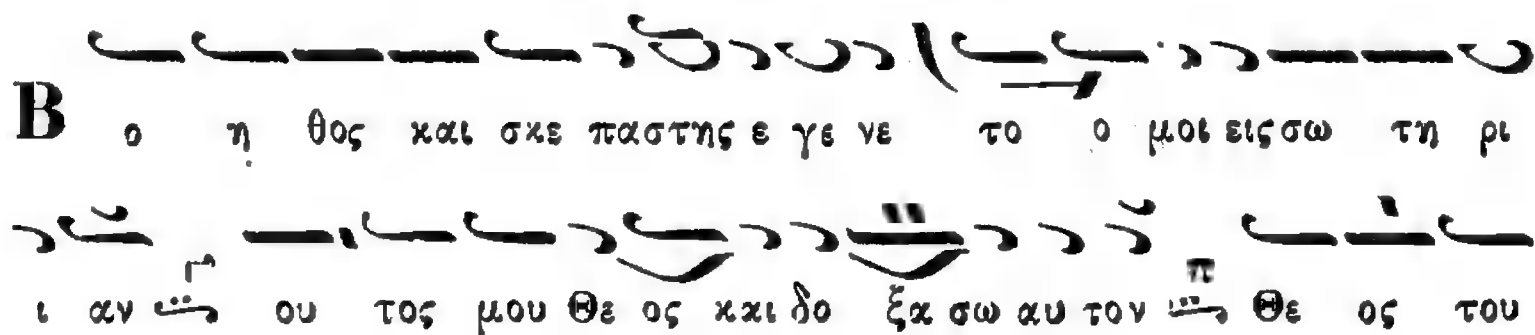 Β ο η θος και σκε παστης ε γε νε το ο μοι εις σω τη ρι
ι αν ου τος μου Θε ος και δο ξα σω αυ τον Θε ος του